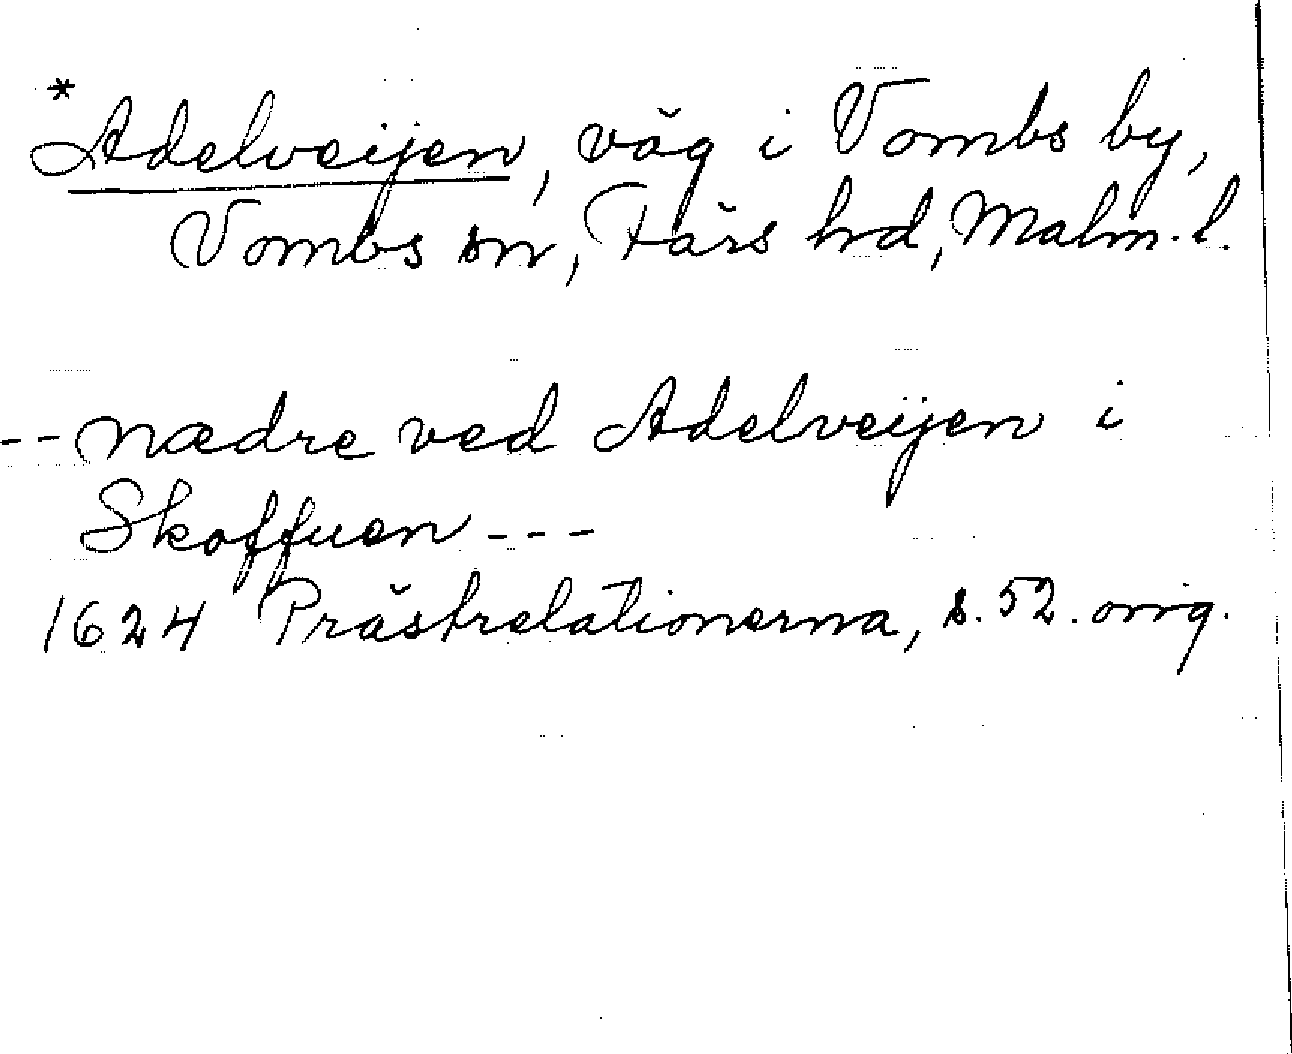 *Adelveijen, väg i Vombs by,
Vombs sn, Färs hd, Malm. l.
-- nædre ved Adelveijen i
Skoffuen ---
1624 Prästrelationerna, s. 52. orig.